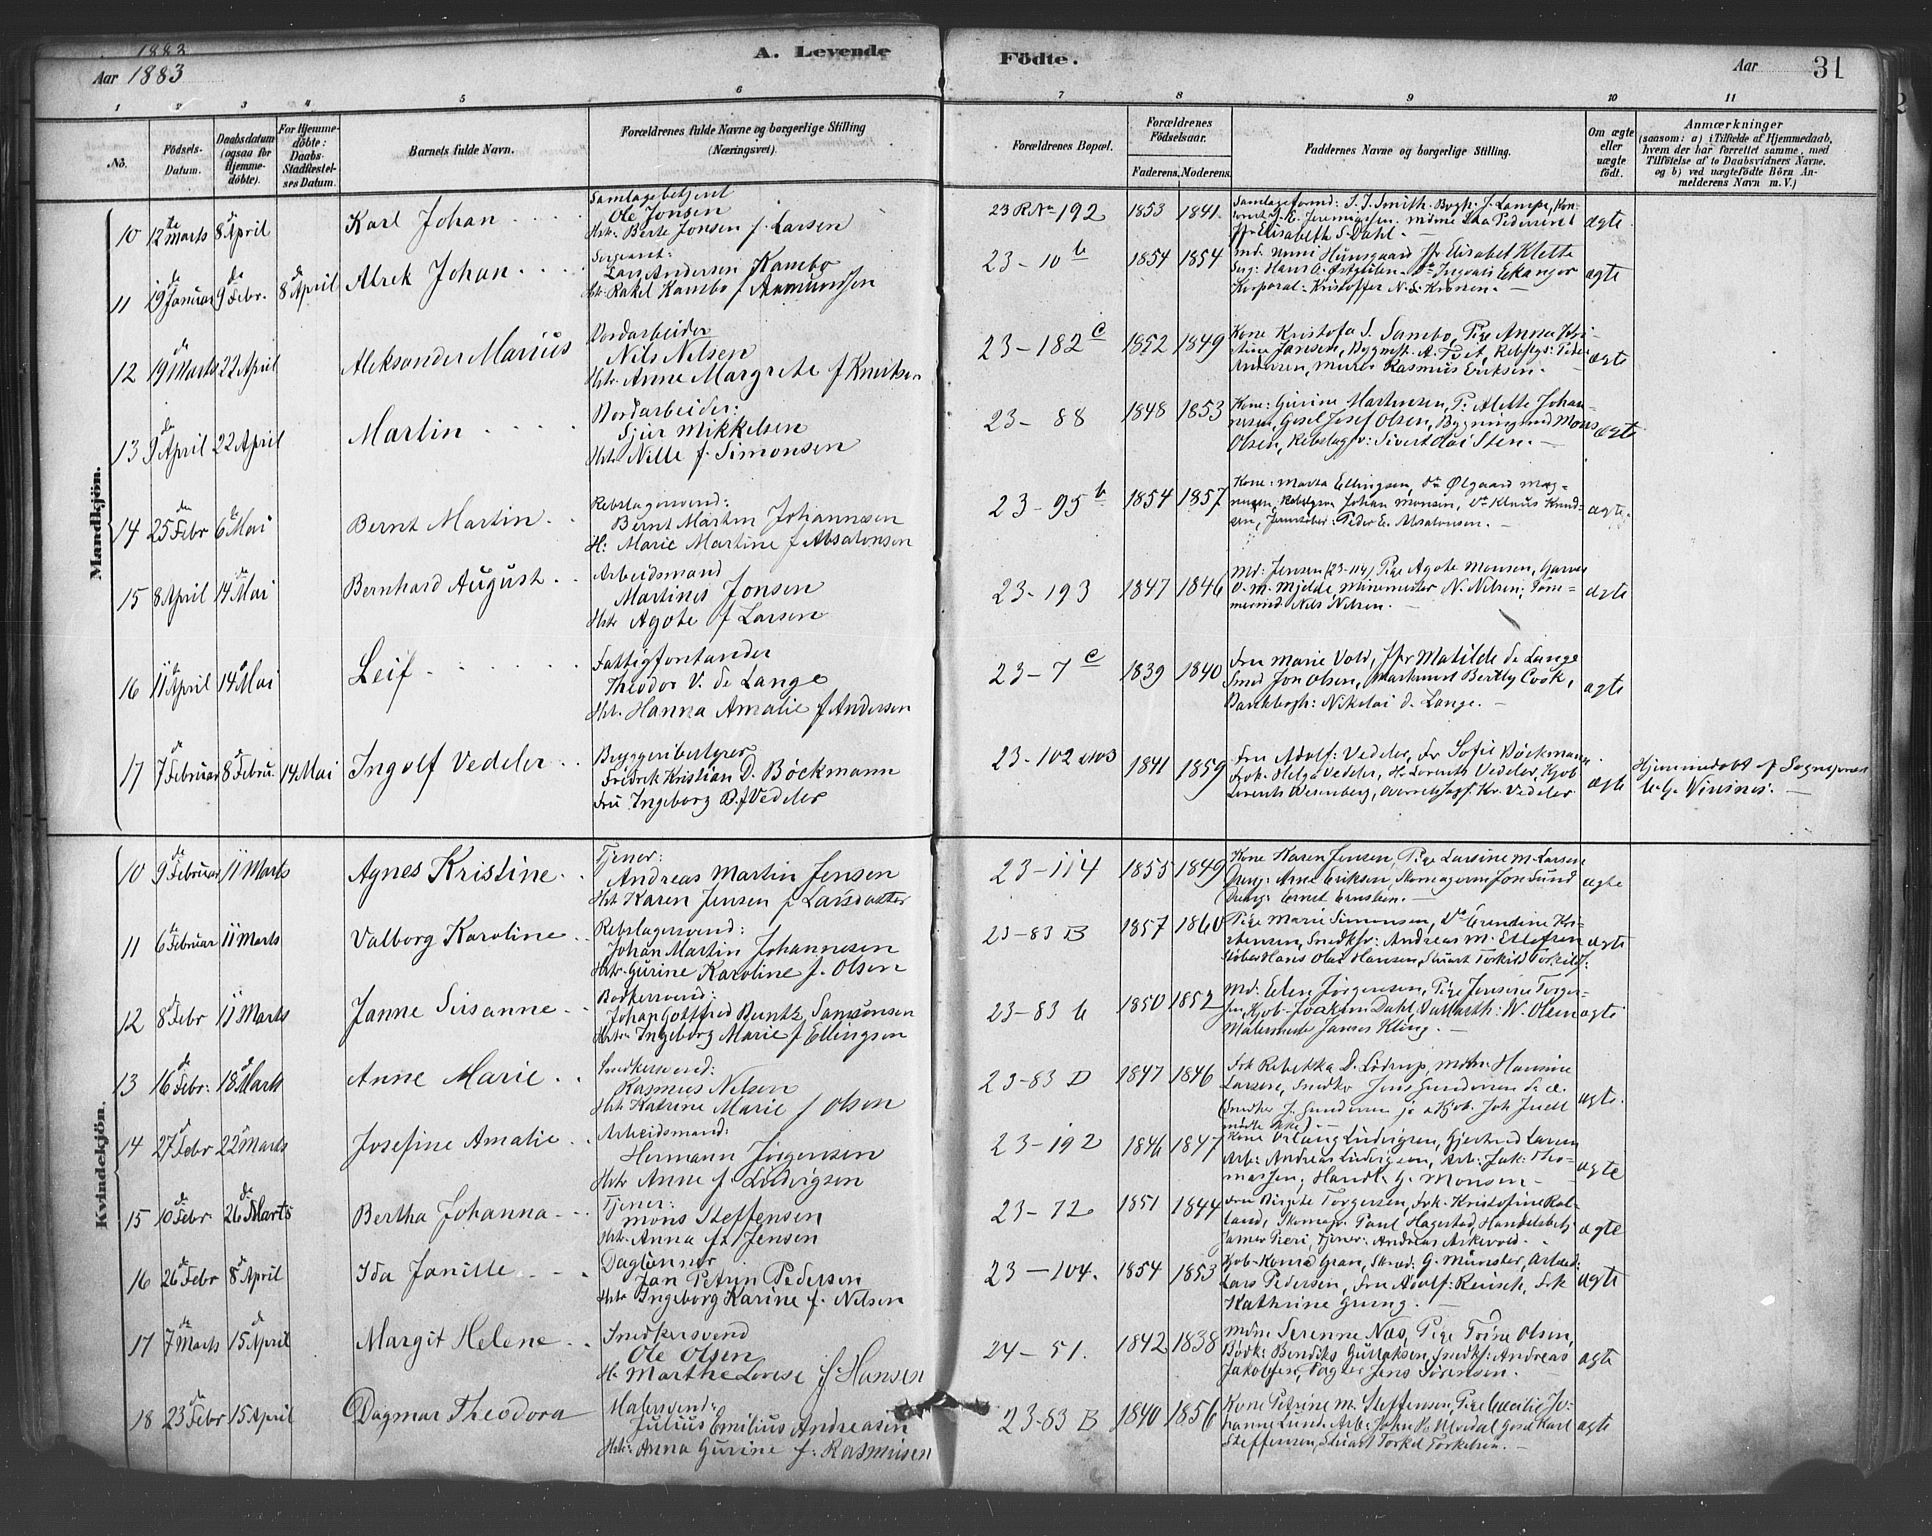 1883
A. Levende Födte.
Aar 1883
Aar 31
1 2 3 4 5 6 7 8 9 10 11
No.
Födsels-Datum.
Daabsdatum (ogsaa for Hjemme-döbte).
For Hjemme-döbte: Daabs-Stadfæstel-ses Datum.
Barnets fulde Navn.
Forældrenes fulde Navne og borgerlige Stilling (Næringsvei).
Forældrenes Bopæl.
Forældrenes Födselsaar.
Faderens. Moderens.
Faddernes Navne og borgerlige Stilling.
Om ægte eller uægte födt.
Anmærkninger
(saasom: a) i Tilfælde af Hjemmedaab,
hvem der har forrettet samme, med
Tilföielse af to Daabsvidners Navne,
og b) ved uægtefödte Börn An-
melderens Navn m. V.)
Mandkjön.
10 12te Marts 8de April Karl Johan
Samlagsbetjent
Ole Jonsen
Hstr. Berte Jonsen f. Larsen
23 R No 192 1853 1841
Jfr Elisabeth S. Dahl. ægte
11 29de Januar 9de Febr. 8de April Alrek Johan
Sergeant:
Lars Andersen Kambo
Hstr. Rakel Kambo f Aamundsen
23-10 b 1854 1854
Jfr Elisabet Klette
Korporal Kristoffer N. S. Kronen. ægte
12 19de Marts 22 April Aleksander Marius
Nils Nilsen
Hstr. Anne Margrete f
23-182 c 1852 1849
Kone Kristofa S. Sambo, Pige Anna Kri-
stine Jansen, Bygmest. A. Tvet, Rebslgs: Peder
Andersen, Murer Rasmus Eriksen. ægte
13 9de April 22 April Martin
Sjur Mikkelsen
Hstr. Nille f. Simonsen
23-88 1848 1853
Kone: Gurine Martinsen, P: Alette Johan-
nesen, Gesel Josef Olsen, Bygningssnd Mons
Olsen, Rebslagsv: Sivert Sten. ægte
14 25de Febr 6de Mai Bernt Martin
Rebslagersvend:
Bernt Martin Johannesen
H: Marie Martine f Absalonsen
23-95 b 1854 1857
Kone: Marta Ellingsen, Do Olgaard Mag-
nusen, Rebslgsv Johan Monsen, Do Klaus Knud-
sen, Peder E. Absalonsen. ægte
15 8 April 14de Mai Bernhard August
Arbeidsmand
Martines Jonsen
Hstr Agote f Larsen
23-193 1847 1846
Md: Jensen (23-114) Pige Agote Monsen, Garver
O. M. Mjelde, Minemester N. Nilsen, Töm-
mermd Nils Nilsen. ægte
16 11te April 14de Mai Leif
Fattigforstander
Theodor V. de Lange
Hstr. Hanna Amalie f Andersen
23-7 c 1839 1840
Fru Marie Vold, Jfr Matilde de Lange
Smed Jon Olsen, Bertly Cook,
Nikolai d. Lange. ægte
17 7de Februar 8 Februa 14 Mai Ingolf Vedeler
Bryggeribestyrer
Fredrik Kristian D. Böckmann
Fru Ingeborg B. f Vedeler
23-102 1841 1859
Fru Adolf: Vedeler, Fr Sofie Böckmann
Frök. Helga Vedeler, Hr Lorents Vedeler, Kjöb
Lorents Wesenberg, Overretssagf. Kr. Vedeler ægte
Hjemmedöbt af Sognepræst
Wiesnes.
Kvindekjön.
10 9de Februar 11 Marts Agnes Kristine
Tjener:
Andreas Martin Jensen
Hst Karen Jensen f Larsdatter
23-114 1855 1849
Kone Karen Jensen, Pige Larsine M. Larsen
Dreng: Arne Eriksen, Skomagersv Jon Lund
Dreng: Ernst Erntsen. ægte
11 6de Februar 11 Marts Valborg Karoline
Rebslagersvend:
Johan Martin Johannesen
Hstr. Gurine Karoline f. Olsen
23-83 B 1857 1860
Pige Marie Simonsen, Do Erendine Kri-
stensen, Snedksv: Andreas M. Ellefsen
Hans Olai Hansen, Stuart Torkild Torkilds: ægte
12 8de Febr 11 Marts Janne Susanne
Bödkersvend:
Johan Gotfred Buntz Samsonsen
Hstr. Ingeborg Marie f Ellingsen
23-83 b 1850 1852
Md: Elen Jörgensen, Pige Jensine Torger-
sen, Kjöb-Joakim Dahl, W. Olsen
Malermester James Kling. ægte
13 16de Febr: 18de Marts Anne Marie
Snedkersvend:
Rasmus Nilsen
Hstr Katrine Marie f Olsen
23-83 D 1847 1846
Frk Rebekka D. Lödrup, Hansine
Larsen, Snedker Jens Gundersen
(Snedker J. Gundersen
mödte ikke). ægte
14 27de Febr 22 Marts Josefine Amalie
Arbeidsmand:
Hermann Jörgensen
Hstr Anne f. Ludvigsen
23-192 1846 1847
Kone Ludvigsen, Gjertrud Larsen
Arb: Andreas Ludvigsen, Arb: Jak: Tho-
massen, Handl. G. Monsen ægte
15 10de Febr 26de Marts Bertha Johanna
Tjener:
Mons Steffensen
Hstr. Anna f. Jensen
23-72 1851 1844
Fru Birgite Torgersen, Frk. Kristofine Kal-
land, Skomagr Paul Hagestad, Handelsbetj.
James Pieri, Tjener: Andreas Askevold. ægte
16 26de Febr 8de April Ida Janille
Daglönner
Jan Petrin Pedersen
Hstr Ingeborg Karine f. Nilsen
23-104. 1854 1853
Kjöb-Konrad Gran, Skræd. G. Münster, Arbeid:
Lars Pedersen, Fru Adolf: Reusch, Frk
Kathrine Grung. ægte
17 7de Marts 15de April Margit Helene
Snedkersvend
Ole Olsen
H. Marthe Lovise f Hansen
24-51. 1842 1838
Mdme Serenne Næs, Pige Trine Olsen,
Bödk: Bendiks Gullaksen, Snedksv: Andreas
Jakobsen, Dagler Jens Sörensen. ægte
18 23de Febr 15 April Dagmar Theodora
Malersvend:
Julius Emilius Andreasen
Hstr: Anna Gurine f. Rasmusen
23-83 B 1840 1856
Kone Petrine M. Steffensen, Pige Cecilie Jo-
hanne Lund, Arb: John P. Gesel Karl
Steffensen, Stuart Torkel Torkelsen. ægte